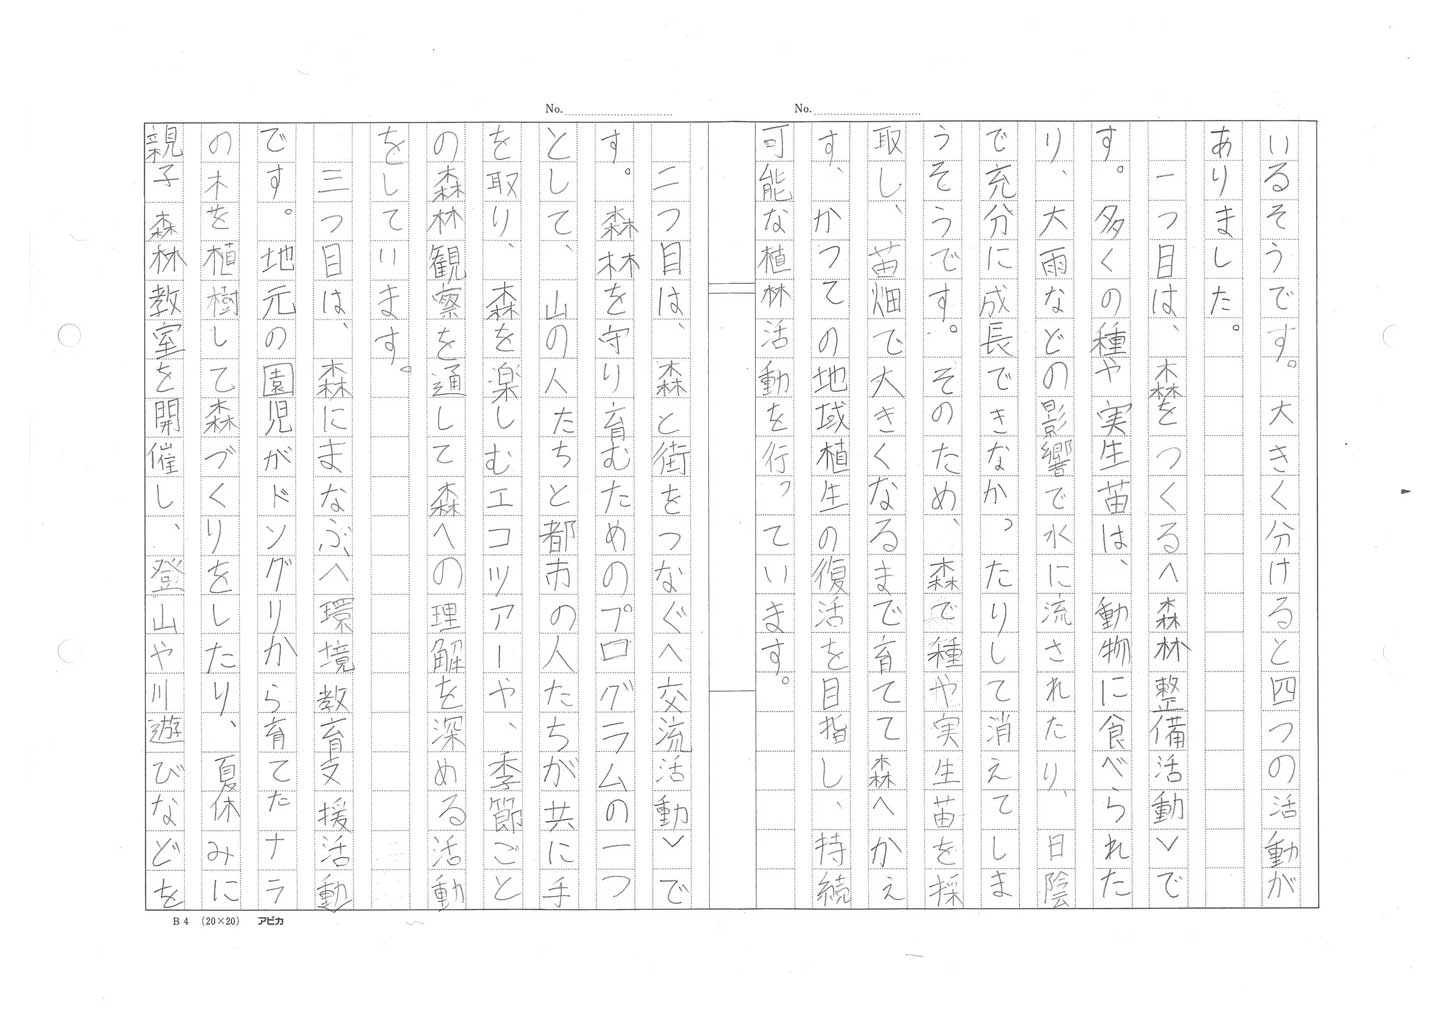 No.
No.
いるそうです。大きく分けると四つの活動が
ありました。
一つ目は、森をつくるへ森林整備活動＞で
す。多くの種や実生苗は、動物に食べられた
り、大雨などの影響で水に流されたり、日陰
で充分に成長できなかったりして消えてしま
うそうです。そのため、森で種や実生苗を採
取し、苗畑で大きくなるまで育てて森へかえ
す、かつての地域植生の復活を目指し、持続
可能な植林活動を行っています。
二つ目は、森と街をつなぐへ交流活動＞で
す。森林を守り育むためのプログラムの一つ
として、山の人たちと都市の人たちが共に手
を取り、森を楽しむエコツアーや、季節ごと
の森林観察を通して森への理解を深める活動
をしています。
三つ目は、森にまなぶへ環境教育支援活動
です。地元の園児がドングリから育てたナラ
の木を植樹して森づくりをしたり、夏休みに
親子森林教室を開催し、登山や川遊びなどを
B4 (20×20) アピカ